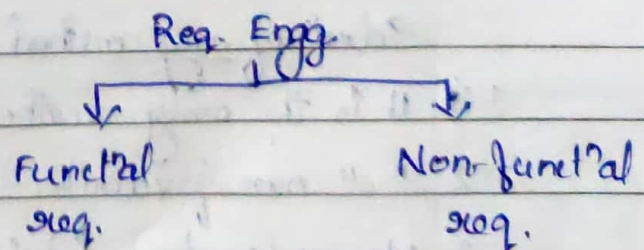 Req. Engg.
Functnal Non-functnal
req. req.